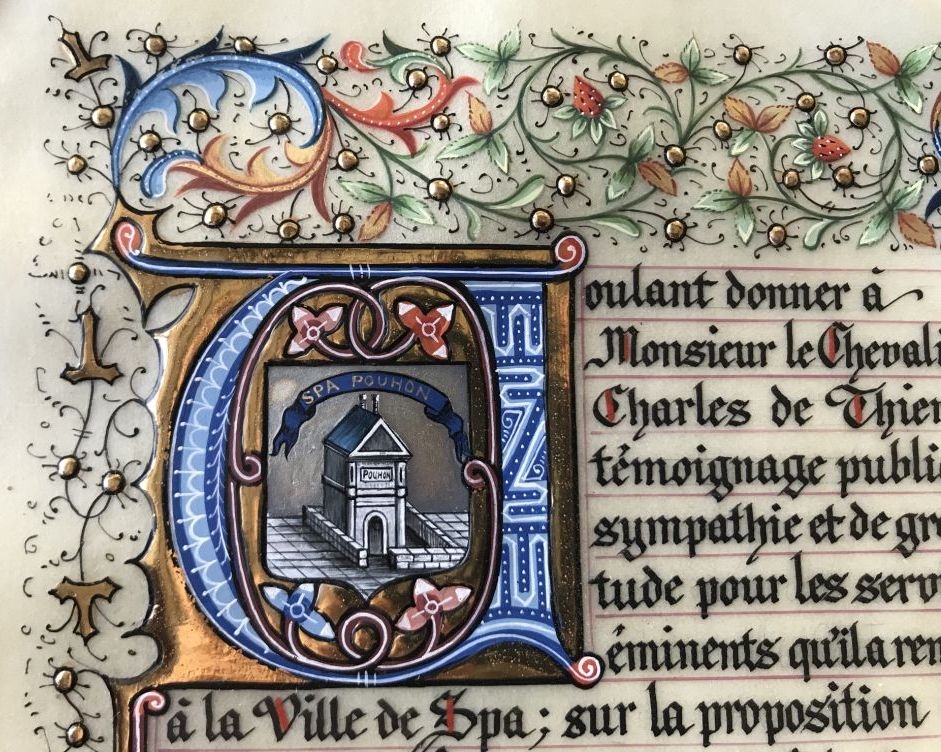 SPA POUHON
POUHON
Voulant donner à
Monsieur le Cheval
Charles de Thier
témoignage publi
sympathie et de gr
tude pour les serv
éminents qu'il a ren
à la Ville de Spa ; sur la proposition